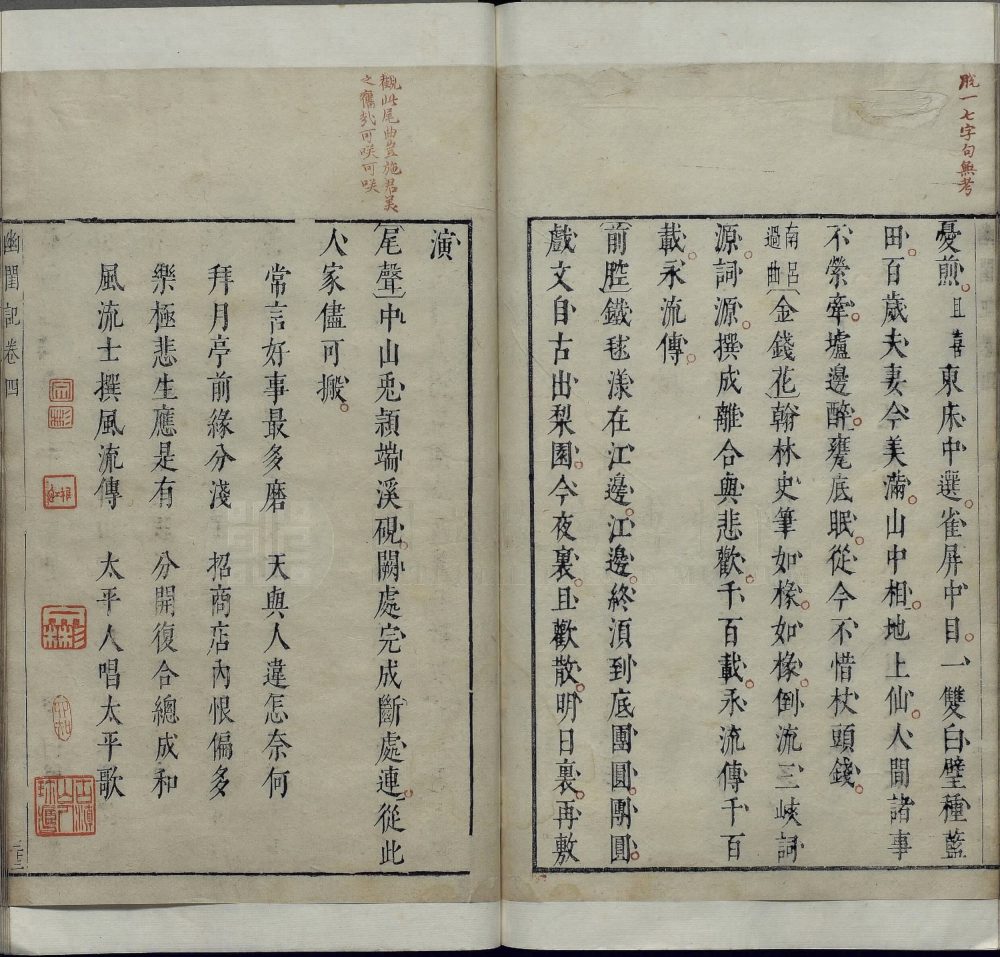 脱一七字句無考
憂煎且喜東床中選雀屏中目一雙白璧種藍
田百歲夫妻今美滿山中相地上仙人間諸事
不縈牽壚邊醉甕底眠從今不惜杖頭錢
南呂過曲〔金錢花〕翰林史筆如椽如椽倒流三峽詞
源詞源撰成離合與悲歡千百載永流傳千百
載永流傳
〔前腔〕鐵毬漾在江邊江邊終須到底團圓團圓
戲文自古出梨園今夜裏且歡散明日裏再敷
觀此尾曲豈施君美
之舊哉可咲可咲
演
〔尾聲〕中山兎頴端溪硯闕處完成斷處連從此
人家儘可搬
常言好事最多磨 天與人違怎奈何
拜月亭前緣分淺 招商店內恨偏多
樂極悲生應是有 分開復合總成和
風流士撰風流傳 太平人唱太平歌
幽閨記卷四